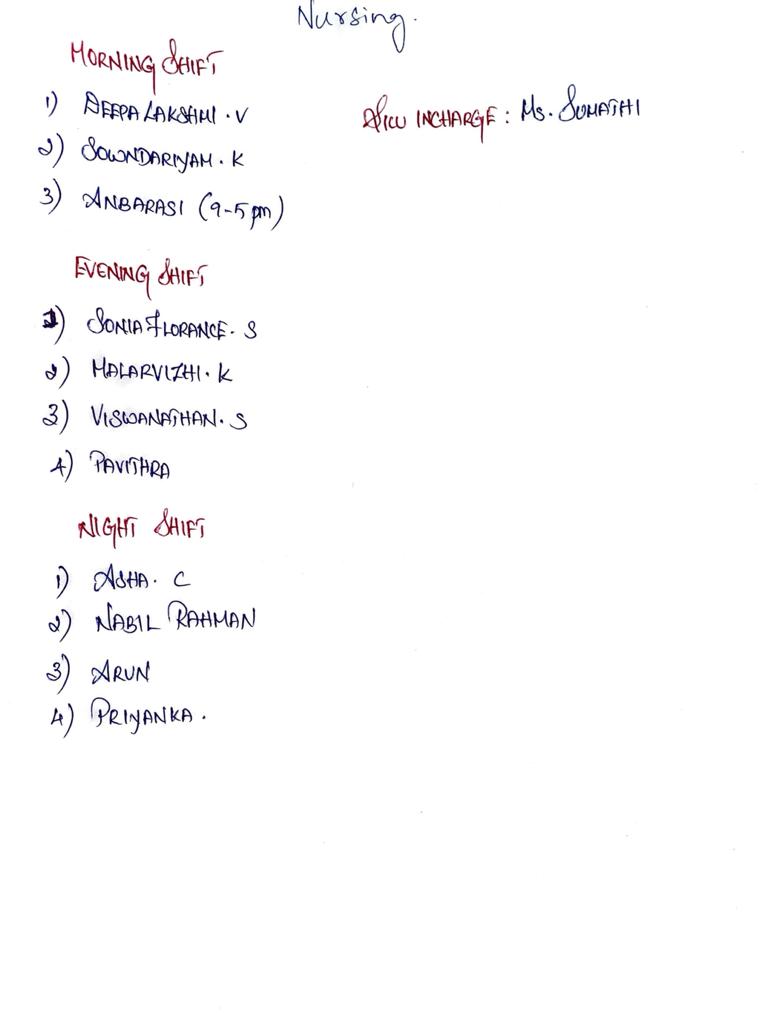 Nursing.
MORNING SHIFT
1) DEEPA LAKSHMI . V
SICU INCHARGE : Ms. SUMATHI
2) SOWNDARIYAM . K
3) ANBARASI (9-5 pm)
EVENING SHIFT
1) SONIA FLORANCE . S
2) MALARVIZHI . K
3) VISWANATHAN . S
4) PAVITHRA
NIGHT SHIFT
1) ASHA . C
2) NABIL RAHMAN
3) ARUN
4) PRIYANKA .